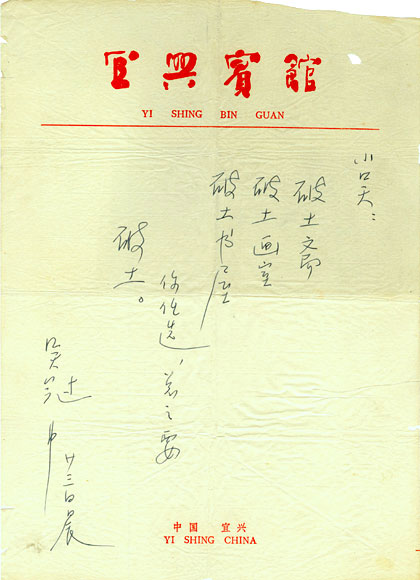 宜興賓館
YI SHING BIN GUAN
小吴：
破土文
破土画室
破土书屋
你任选，总之要
破土。
吴冠中 廿三日晨
中国 宜兴
YI SHING CHINA